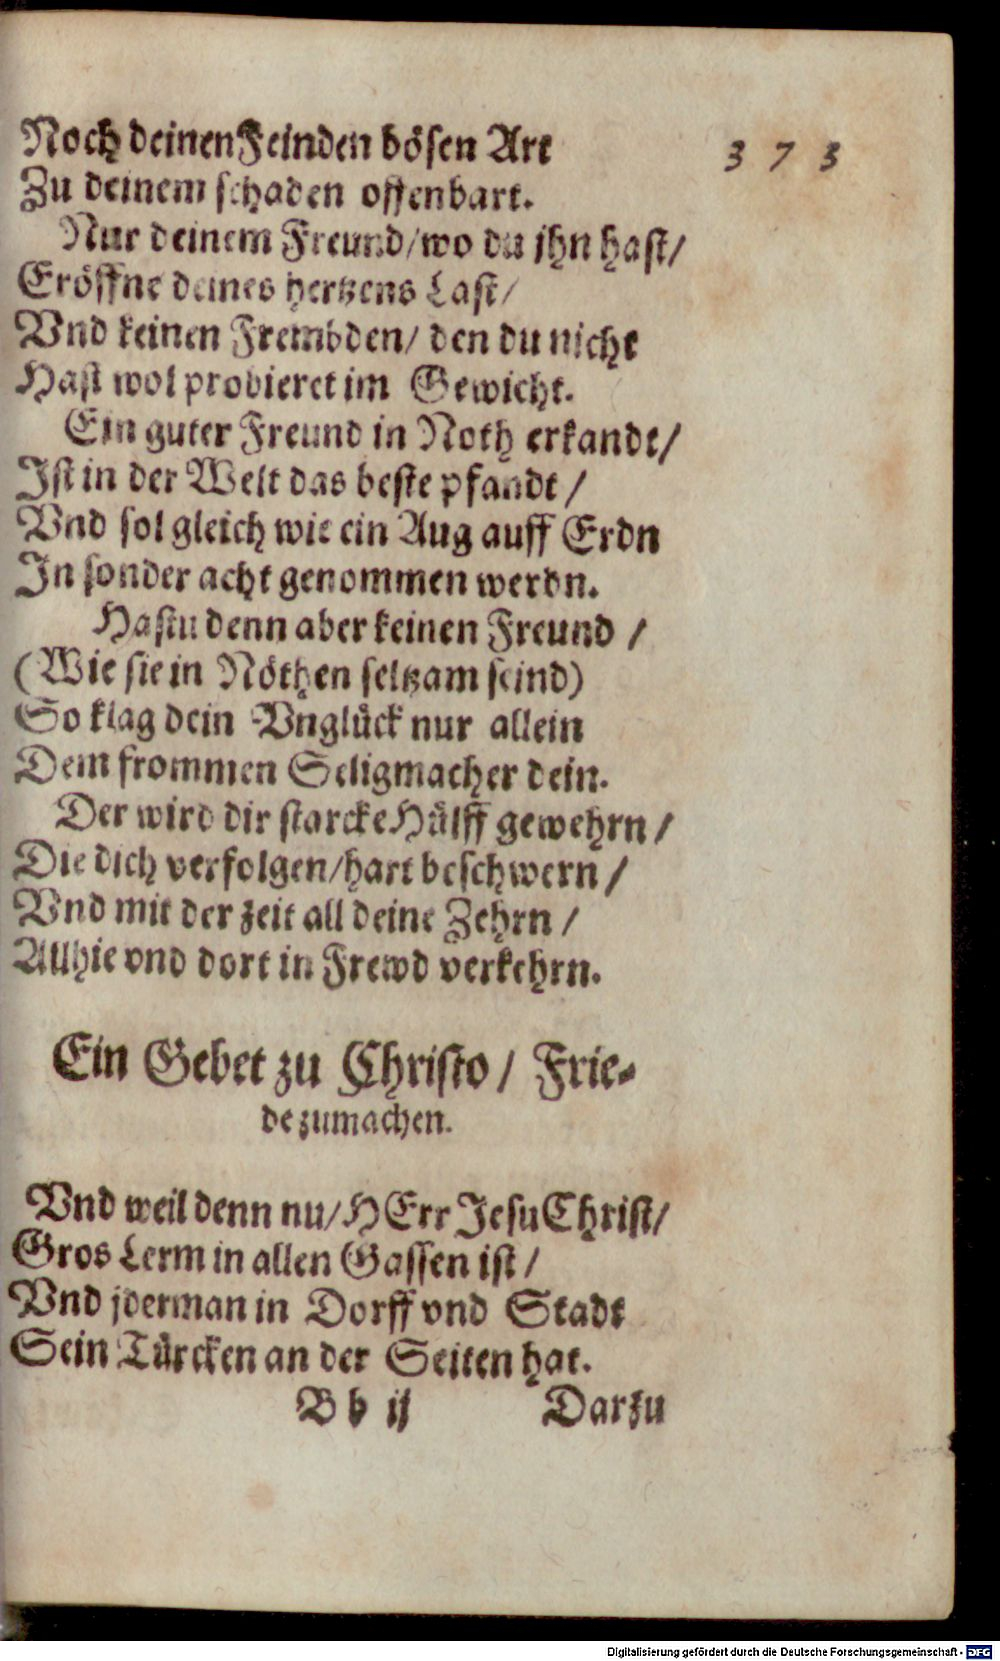 Noch deinen Feinden bösen Art
373
Zu deinem schaden offenbart.
Nur deinem Freund/wo du jhn hast/
Eröffne deines hertzens Last/
Vnd keinen Frembden/ den du nicht
Hast wol probieret im Gewicht.
Ein guter Freund in Noth erkandt/
Ist in der Welt das beste pfandt /
Vnd sol gleich wie ein Aug auff Erdn
In sonder acht genommen werdn.
Hastu denn aber keinen Freund /
(Wie sie in Nöthen seltzam seind)
So klag dein Vnglück nur allein
Dem frommen Seligmacher dein.
Der wird dir starcke Hülff gewehrn /
Die dich verfolgen/hart beschwern /
Vnd mit der zeit all deine Zehrn /
Allhie vnd dort in Frewd verkehrn.
Ein Gebet zu Christo / Frie-
de zumachen.
Vnd weil denn nu/HErr Jesu Christ/
Gros Lerm in allen Gassen ist /
Vnd jderman in Dorff vnd Stadt
Sein Türcken an der Seiten hat.
B b ij Darzu
Digitalisierung gefördert durch die Deutsche Forschungsgemeinschaft - DFG